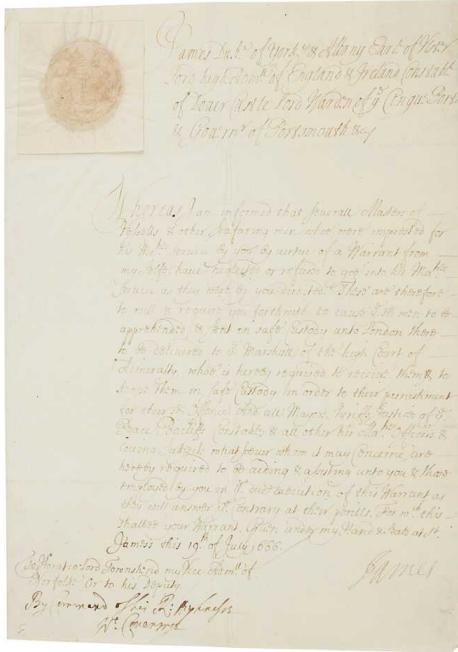 James Duke of Yorke & Albany Earle of
Lord high Adm.ll of England & Ireland Constable
of Dover Castle Lord Warden of ye Cinque Ports
& Govern.r of Portsmouth &c
Whereas I am informed that severall Masters of
Vessells & other seafaring men who were impressed for
his Ma.ties service by you by vertue of a Warrant from
my selfe, have neglected or refused to goe into his Ma.ties
service as they were by you directed. These are therefore
to will & require you forthwith to cause ye men to be
apprehended & sent in safe Custody unto London there
to be delivered to ye Marshall of the high Court of
Admiralty who is hereby required to receive them & to
keepe them in safe Custody in order to their punishment
for their Offence And all Mayors Justices of ye
Peace Bayliffs Constables & all other his Ma.ties Officers &
whom it may concerne are
hereby required to be aiding & assisting unto you & those
by you in ye due execution of this Warrant as
they will answere ye contrary at their perills. For wch this
shalbee your Warrant. Given under my Hand & Seale at St.
James's this 19th of July 1666.
James
To Horatio Lord Townshend my Vice Adm.ll of
Norfolke Or to his Deputy
By Command of his R: Highnesse
W. Coventry